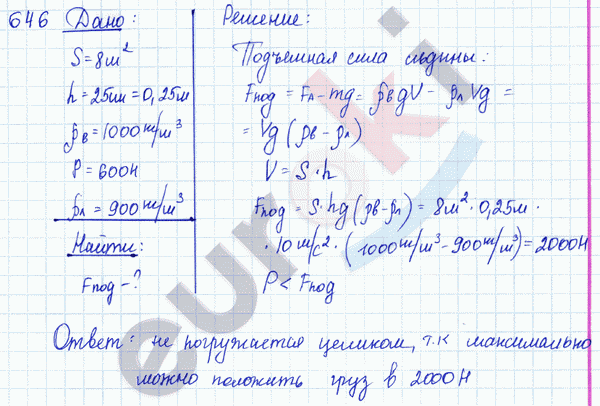 646 Дано:
S = 8 м²
h = 25 см = 0,25 м
ρв = 1000 кг/м³
P = 600 Н
ρл = 900 кг/м³
Найти:
Fпод - ?
Решение:
Подъемная сила льдины:
Fпод = FА - mg = ρвgV - ρлVg =
= Vg (ρв - ρл)
V = S · h
Fпод = S · hg (ρв - ρл) = 8 м² · 0,25 м ·
· 10 м/с² · (1000 кг/м³ - 900 кг/м³) = 2000 Н
P < Fпод
Ответ: не погружается целиком, т.к максимально
можно положить груз в 2000 Н
euroki